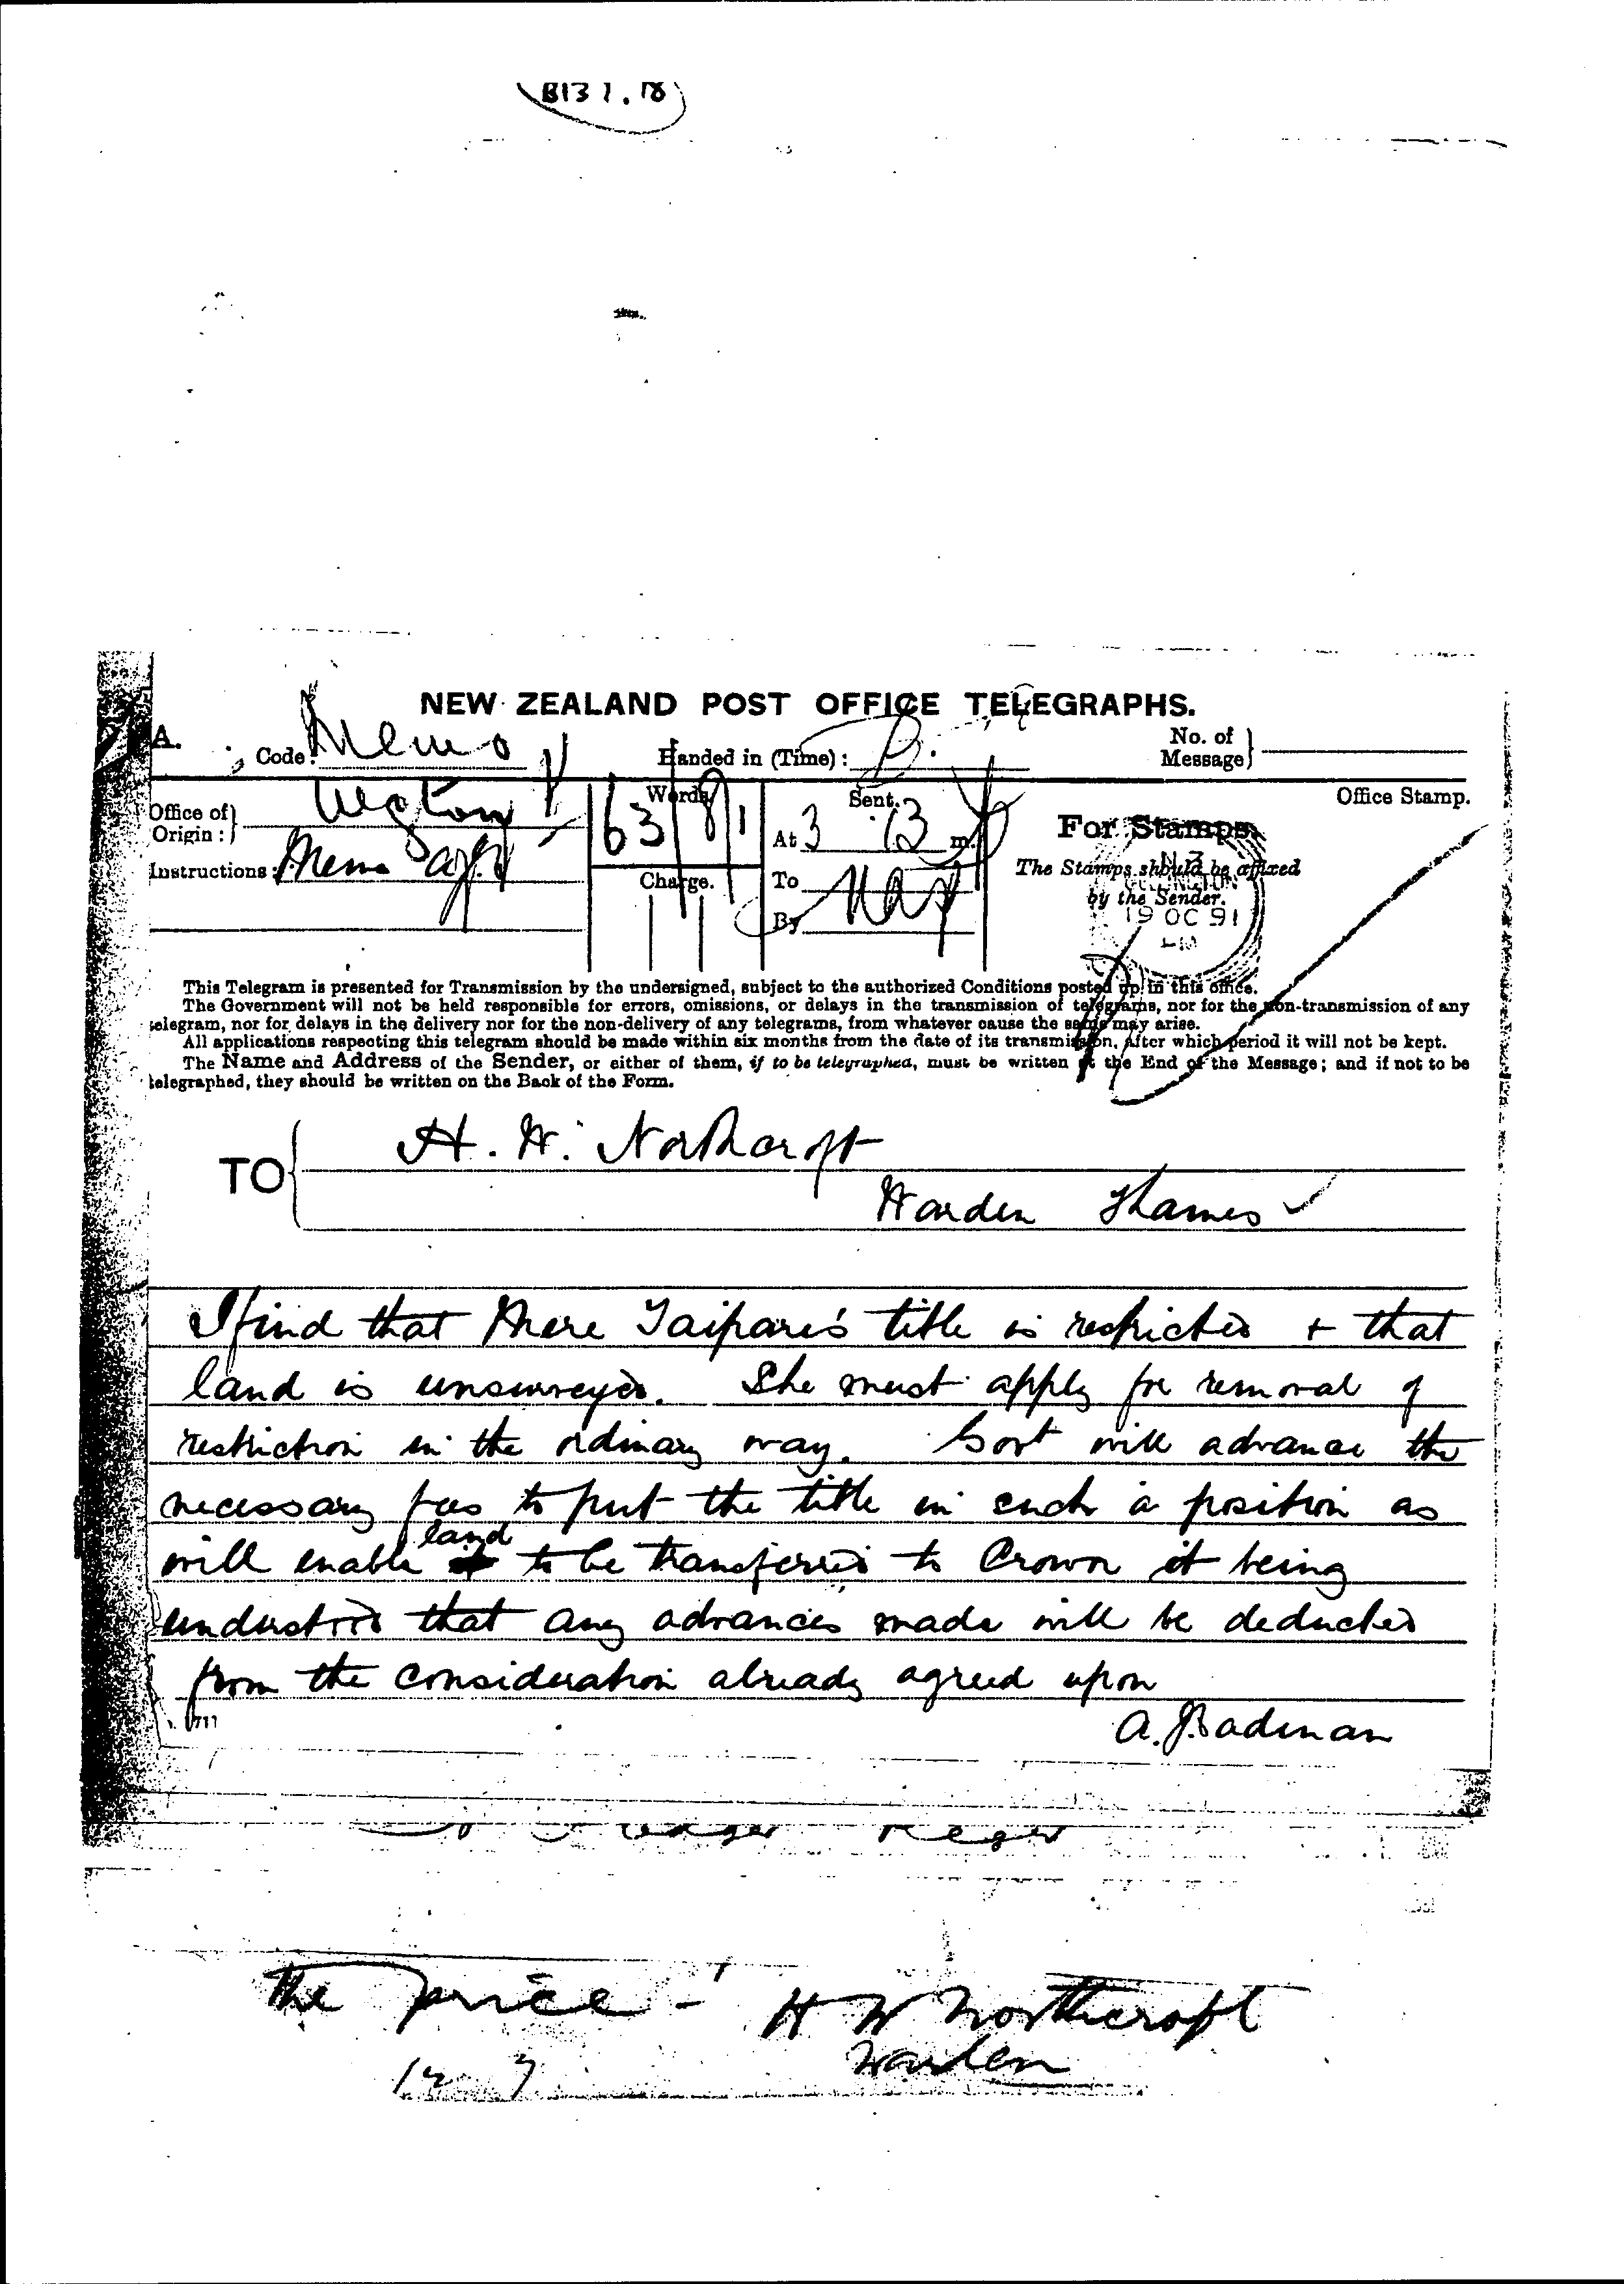 B131.18
NEW ZEALAND POST OFFICE TELEGRAPHS.
A.
Code: Memo
Handed in (Time):
No. of Message
Office of Origin: Wgton
Words 63
Sent.
Office Stamp.
At 3 13 m.
For Stamps.
Instructions: Memo
Charge.
To
The Stamps should be affixed
by the Sender.
By
19 OC 91
This Telegram is presented for Transmission by the undersigned, subject to the authorized Conditions posted up in this office.
The Government will not be held responsible for errors, omissions, or delays in the transmission of telegrams, nor for the non-transmission of any
telegram, nor for delays in the delivery nor for the non-delivery of any telegrams, from whatever cause the same may arise.
All applications respecting this telegram should be made within six months from the date of its transmission, after which period it will not be kept.
The Name and Address of the Sender, or either of them, if to be telegraphed, must be written at the End of the Message; and if not to be
telegraphed, they should be written on the Back of the Form.
TO H. W. Northcroft
Warden Thames
I find that Mere Taipari's title is restricted + that
land is unsurveyed. She must apply for removal of
restriction in the ordinary way. Govt will advance the
necessary fees to put the title in such a position as
will enable land to be transferred to Crown it being
understood that any advances made will be deducted
from the consideration already agreed upon
A. J. Cadman
the price - H W Northcroft
Warden